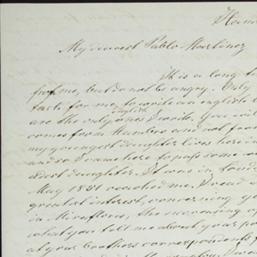 Ham
My dearest Pablo Martinez
It is a long t
from me, but do not be angry. Only
task for me, to write an english
english
are the only ones I write. You will
comes from Hamburg and not from
my youngest daughter lives here in
and so I came here to pass some
eldest daughter. It was in
May 1881 reached me. I read
greatest interest, concerning y
in Miraflores, the
what you tell me about your p
at your brothers correspondents